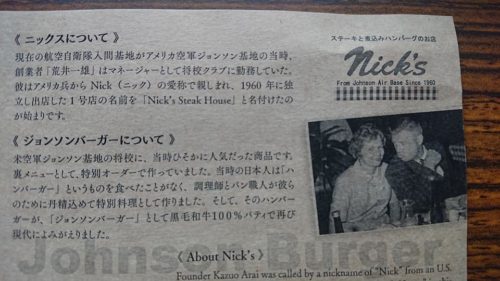 《 ニックスについて 》
現在の航空自衛隊入間基地がアメリカ空軍ジョンソン基地の当時、
創業者「荒井一雄」はマネージャーとして将校クラブに勤務していた。
彼はアメリカ兵からNick（ニック）の愛称で親しまれ、1960 年に独
立し出店した１号店の名前を「Nick's Steak House」と名付けたの
が始まりです。
《 ジョンソンバーガーについて 》
米空軍ジョンソン基地の将校に、当時ひそかに人気だった商品です。
裏メニューとして、特別オーダーで作っていました。当時の日本人は「ハ
ンバーガー」というものを食べたことがなく、調理師とパン職人が彼ら
のために丹精込めて特別料理として作りました。そして、そのハンバー
ガーが、「ジョンソンバーガー」として黒毛和牛100％パティで再び
現代によみがえりました。
Johnson Burger
《 About Nick's 》
Founder Kazuo Arai was called by a nickname of "Nick" from an U.S.
ステーキと煮込みハンバーグのお店
Nick's
From Johnson Air Base Since 1960